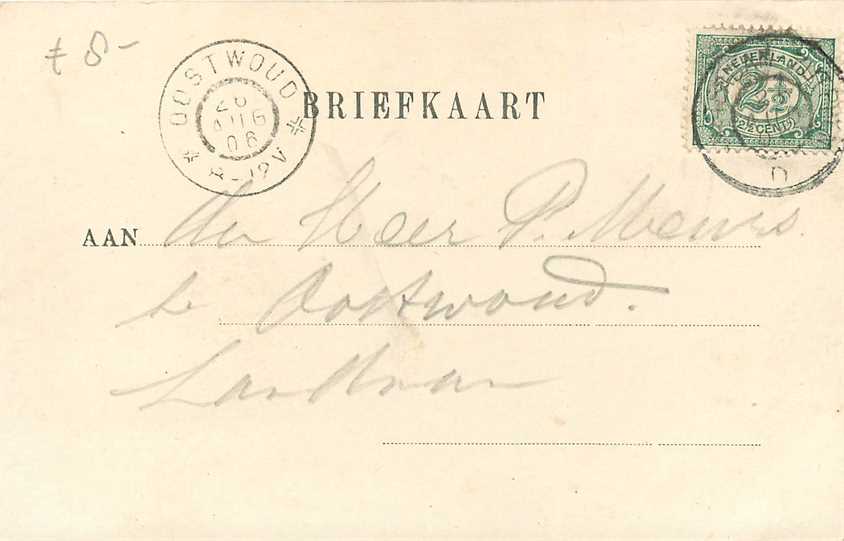 £ 8-
OOSTWOUD
AUG
06
8-12V
BRIEFKAART
NEDERLAND
2½
(2½ CENT)
D
AAN den Heer P. Meurs.
te Oostwoud.